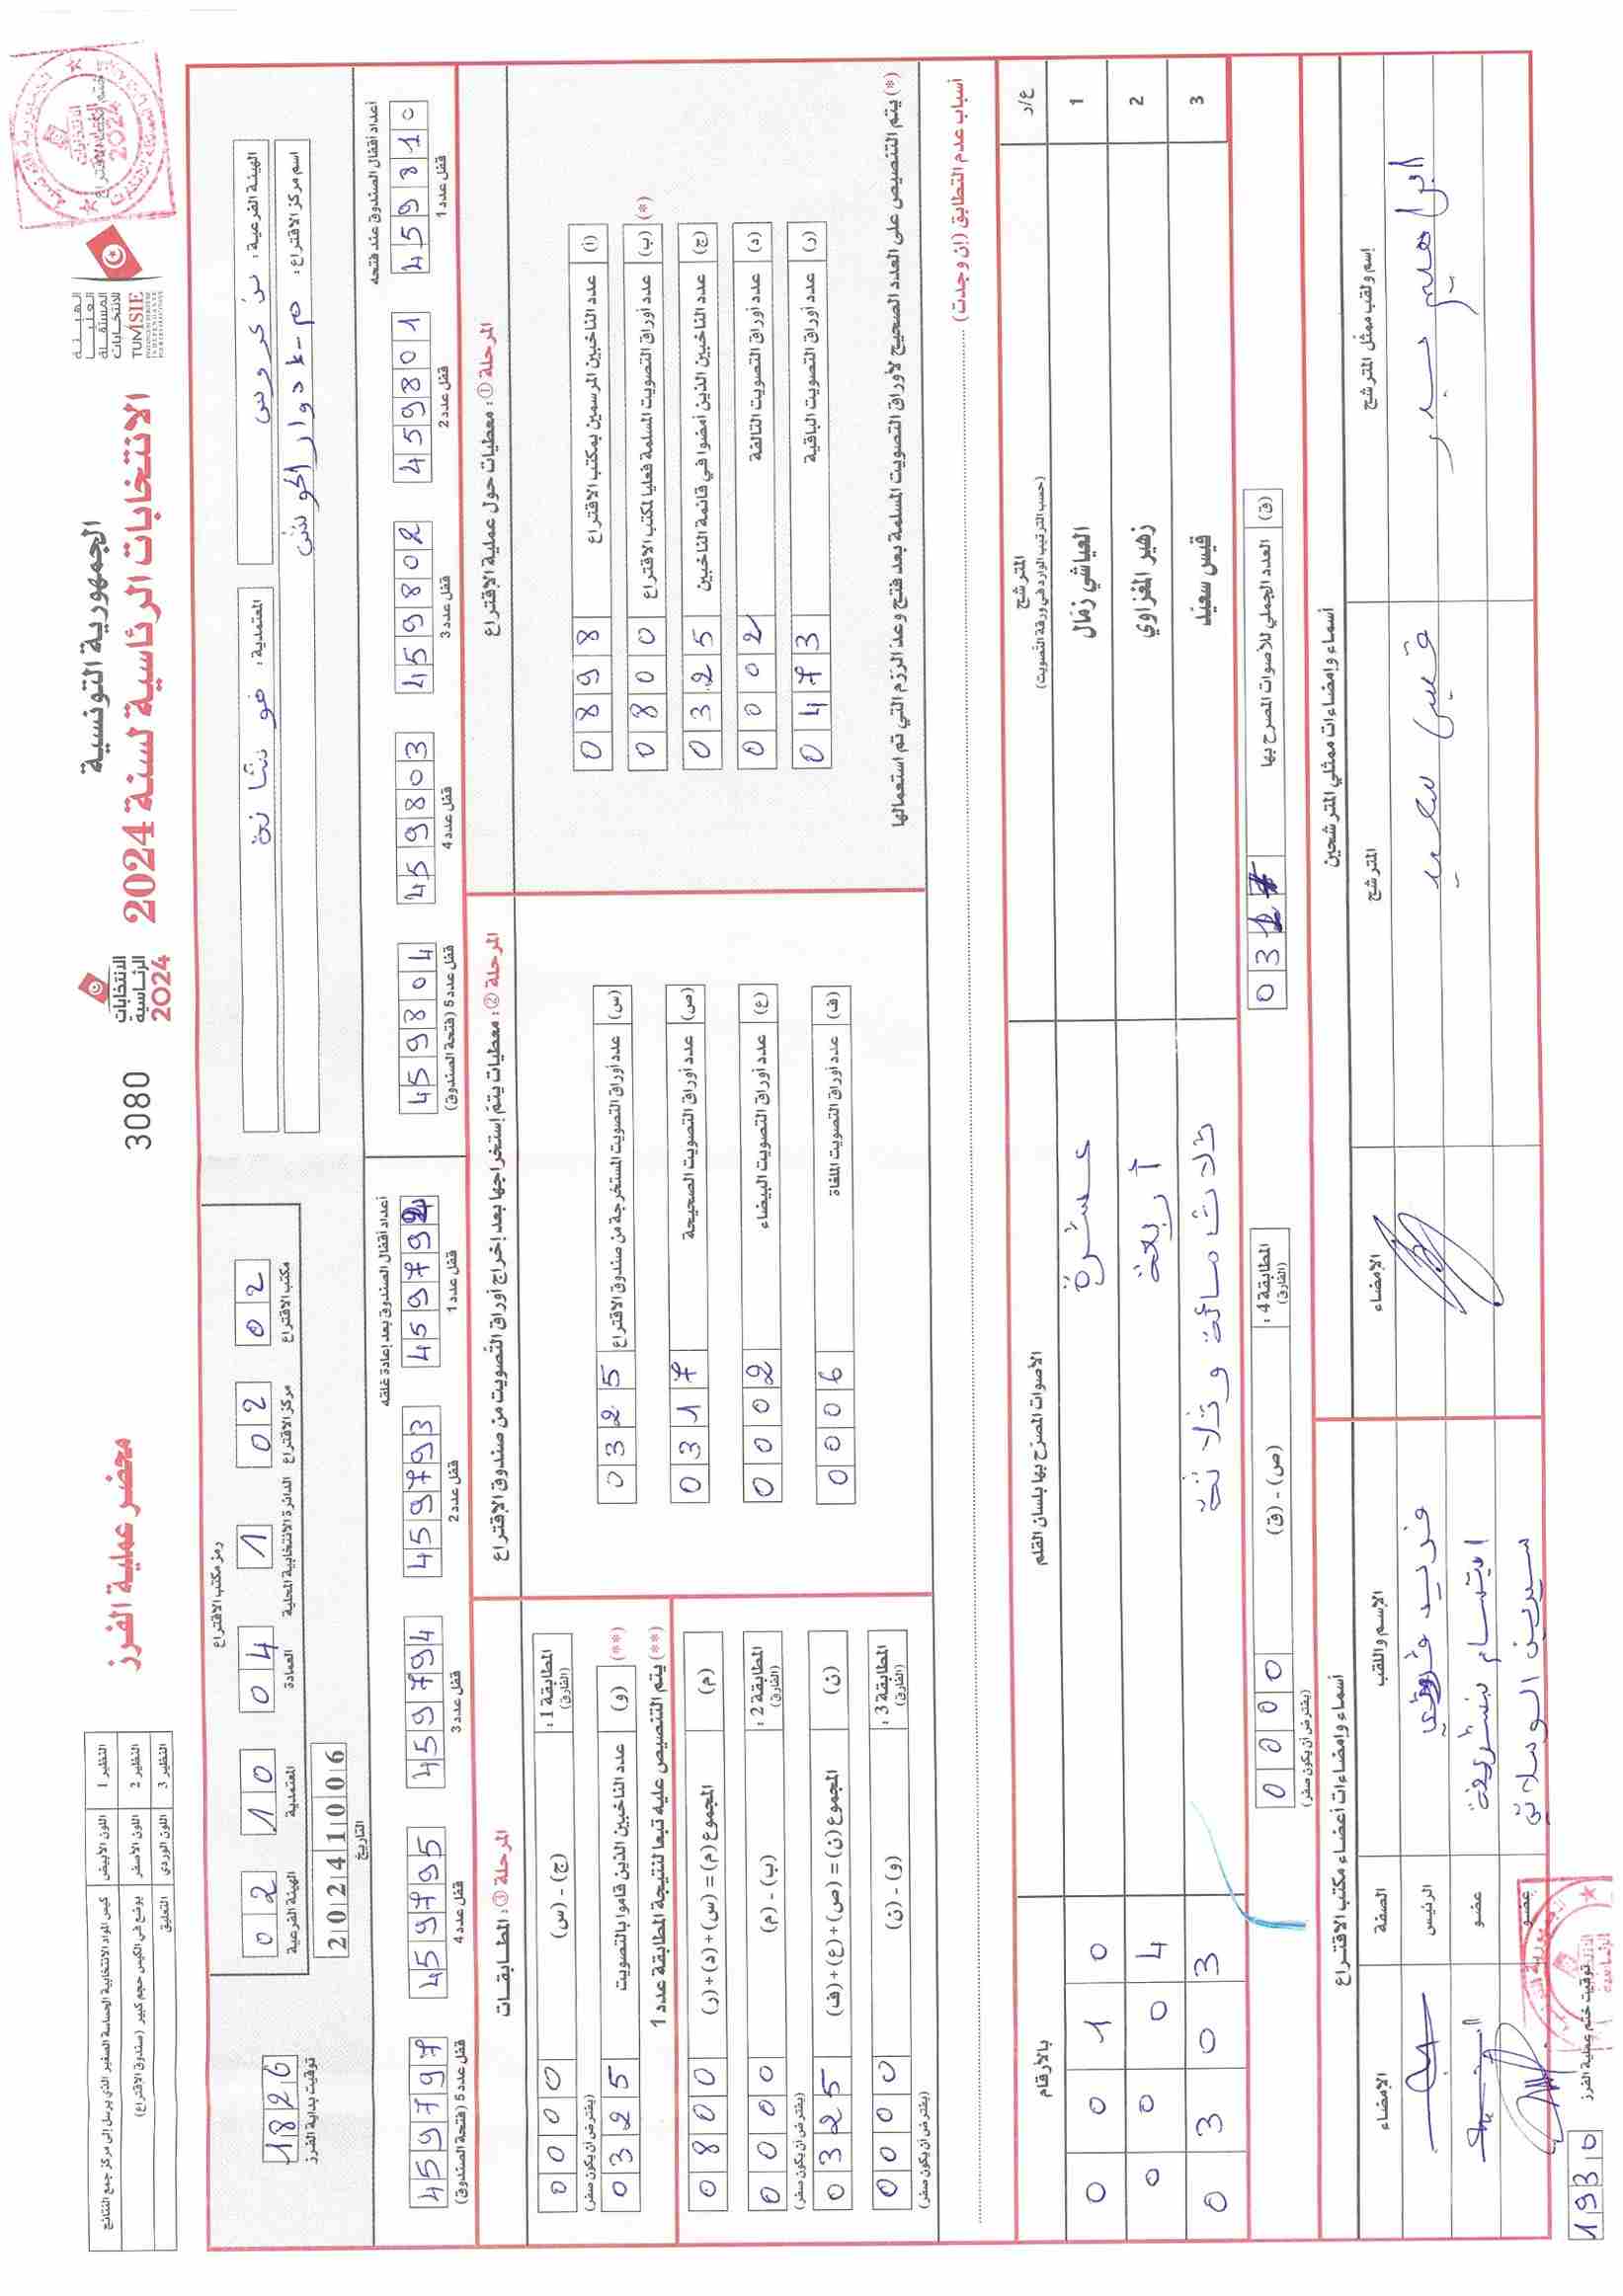 الجمهورية التونسية
الانتخابات الرئاسية لسنة 2024
محضر عملية الفرز
3080
الانتخابات
الرئاسية
2024
الهيئة
العليا
المستقلة
للانتخابات
TUNISIE
ختم مكتب الاقتراع
النظير 1 اللون الأبيض كيس المواد الانتخابية الحساسة الصغير الذي يرسل إلى مركز جمع النتائج
النظير 2 اللون الأصفر يوضع في الكيس حجم كبير (صندوق الاقتراع)
النظير 3 اللون الوردي التعليق
الهيئة الفرعية :
المعتمدية : فوشانة
اسم مركز الاقتراع : م-إ دوار الحوش
رمز مكتب الاقتراع
02 10 04 1 02 02
الهيئة الفرعية المعتمدية العمادة الدائرة الانتخابية المحلية مركز الاقتراع مكتب الاقتراع
20241006
التاريخ
1826
توقيت بداية الفرز
أعداد أقفال الصندوق عند فتحه
459810 قفل عدد 1
459801 قفل عدد 2
459802 قفل عدد 3
459803 قفل عدد 4
459804 قفل عدد 5 (فتحة الصندوق)
أعداد أقفال الصندوق بعد إعادة غلقه
459792 قفل عدد 1
459793 قفل عدد 2
459794 قفل عدد 3
459795 قفل عدد 4
459797 قفل عدد 5 (فتحة الصندوق)
المرحلة ① : معطيات حول عملية الإقتراع
(أ) عدد الناخبين المرسمين بمكتب الاقتراع 0898
(*) (ب) عدد أوراق التصويت المسلمة فعليا لمكتب الاقتراع 0800
(ج) عدد الناخبين الذين أمضوا في قائمة الناخبين 0325
(د) عدد أوراق التصويت التالفة 0002
(ر) عدد أوراق التصويت الباقية 0473
(*) يتم التنصيص على العدد الصحيح لأوراق التصويت المسلمة بعد فتح وعد الرزم التي تم استعمالها
المرحلة ② : معطيات يتم إستخراجها بعد إخراج أوراق التصويت من صندوق الإقتراع
(س) عدد أوراق التصويت المستخرجة من صندوق الاقتراع 0325
(ص) عدد أوراق التصويت الصحيحة 0317
(ع) عدد أوراق التصويت البيضاء 0002
(ف) عدد أوراق التصويت الملغاة 0006
المرحلة ③ : المطابقات
المطابقة 1 : (الفارق) (ج) - (س) 0000
(يفترض أن يكون صفر)
(**) (و) عدد الناخبين الذين قاموا بالتصويت 0325
(**) يتم التنصيص عليه تبعا لنتيجة المطابقة عدد 1
(م) المجموع (م) = (س) + (د) + (ر) 0800
المطابقة 2 : (الفارق) (ب) - (م) 0000
(يفترض أن يكون صفر)
(ن) المجموع (ن) = (ص) + (ع) + (ف) 0325
المطابقة 3 : (الفارق) (و) - (ن) 0000
(يفترض أن يكون صفر)
أسباب عدم التطابق (إن وجدت)
ع/د المترشح (حسب الترتيب الوارد في ورقة التصويت) الأصوات المصرح بها بلسان القلم بالأرقام
1 العياشي زمّال عشرة 0010
2 زهير المغزاوي أربعة 0004
3 قيس سعيّد ثلاثمائة وثلاثة 0303
(ق) العدد الجملي للأصوات المصرح بها 0317
المطابقة 4 : (الفارق) (ص) - (ق) 0000
(يفترض أن يكون صفر)
أسماء وإمضاءات ممثلي المترشحين
إسم ولقب ممثل المترشح المترشح الإمضاء
قيس سعيد
أسماء وإمضاءات أعضاء مكتب الاقتراع
الإسم واللقب الصفة الإمضاء
فريد الرئيس
ابتسام بنشريفة عضو
سيرين الوسلاتي عضو
1930 توقيت ختم عملية الفرز